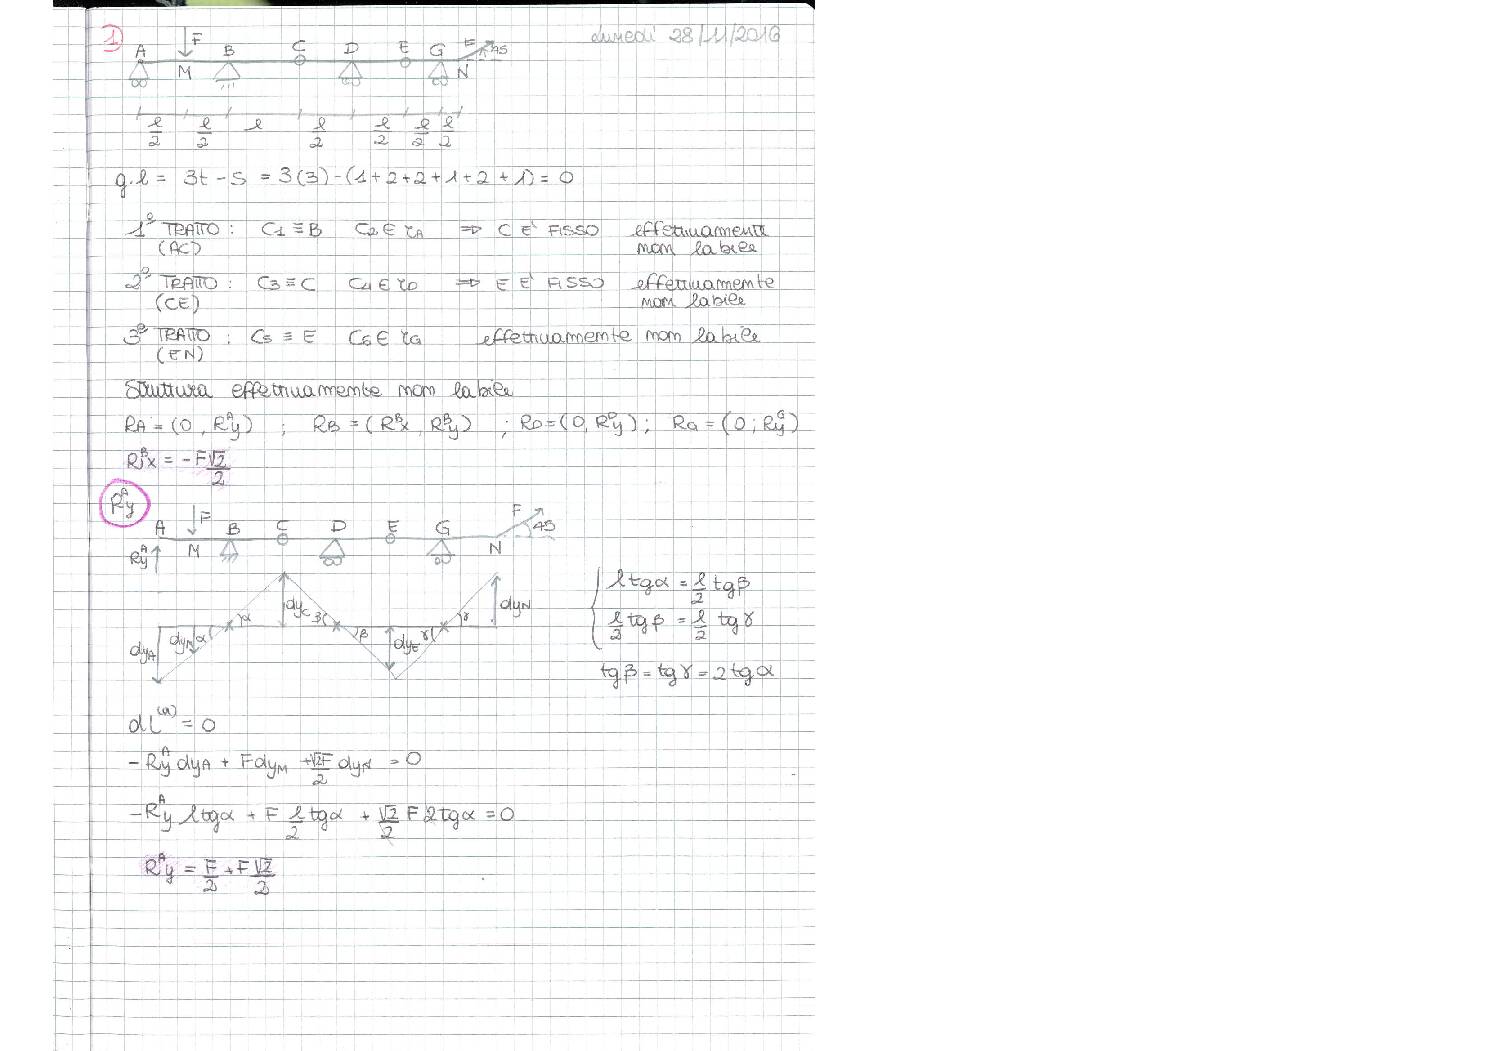 1) lunedì 28/11/2016
A F B C D E G F 45
M N
l/2 l/2 l l/2 l/2 l/2 l/2
g.l = 3t - s = 3(3) - (1+2+2+1+2+1) = 0
1° TRATTO : C1 ≡ B C2 ∈ rA ⇒ C E' FISSO effettivamente
(AC) non labile
2° TRATTO : C3 ≡ C C4 ∈ rD ⇒ E E' FISSO effettivamente
(CE) non labile
3° TRATTO : C5 ≡ E C6 ∈ rG effettivamente non labile
(EN)
Struttura effettivamente non labile
RA = (0, RyA) ; RB = (RxB, RyB) ; RD = (0, RyD) ; RG = (0; RyG)
RxB = -F√2/2
RyA
A F B C D E G F 45
RyA M N
dyA dyM α α dyC β β dyE γ γ dyN
l tgα = l/2 tgβ
l/2 tgβ = l/2 tgγ
tgβ = tgγ = 2tgα
dL(a) = 0
-RyA dyA + F dyM + √2F/2 dyN = 0
-RyA l tgα + F l/2 tgα + √2/2 F 2tgα = 0
RyA = F/2 + F√2/2